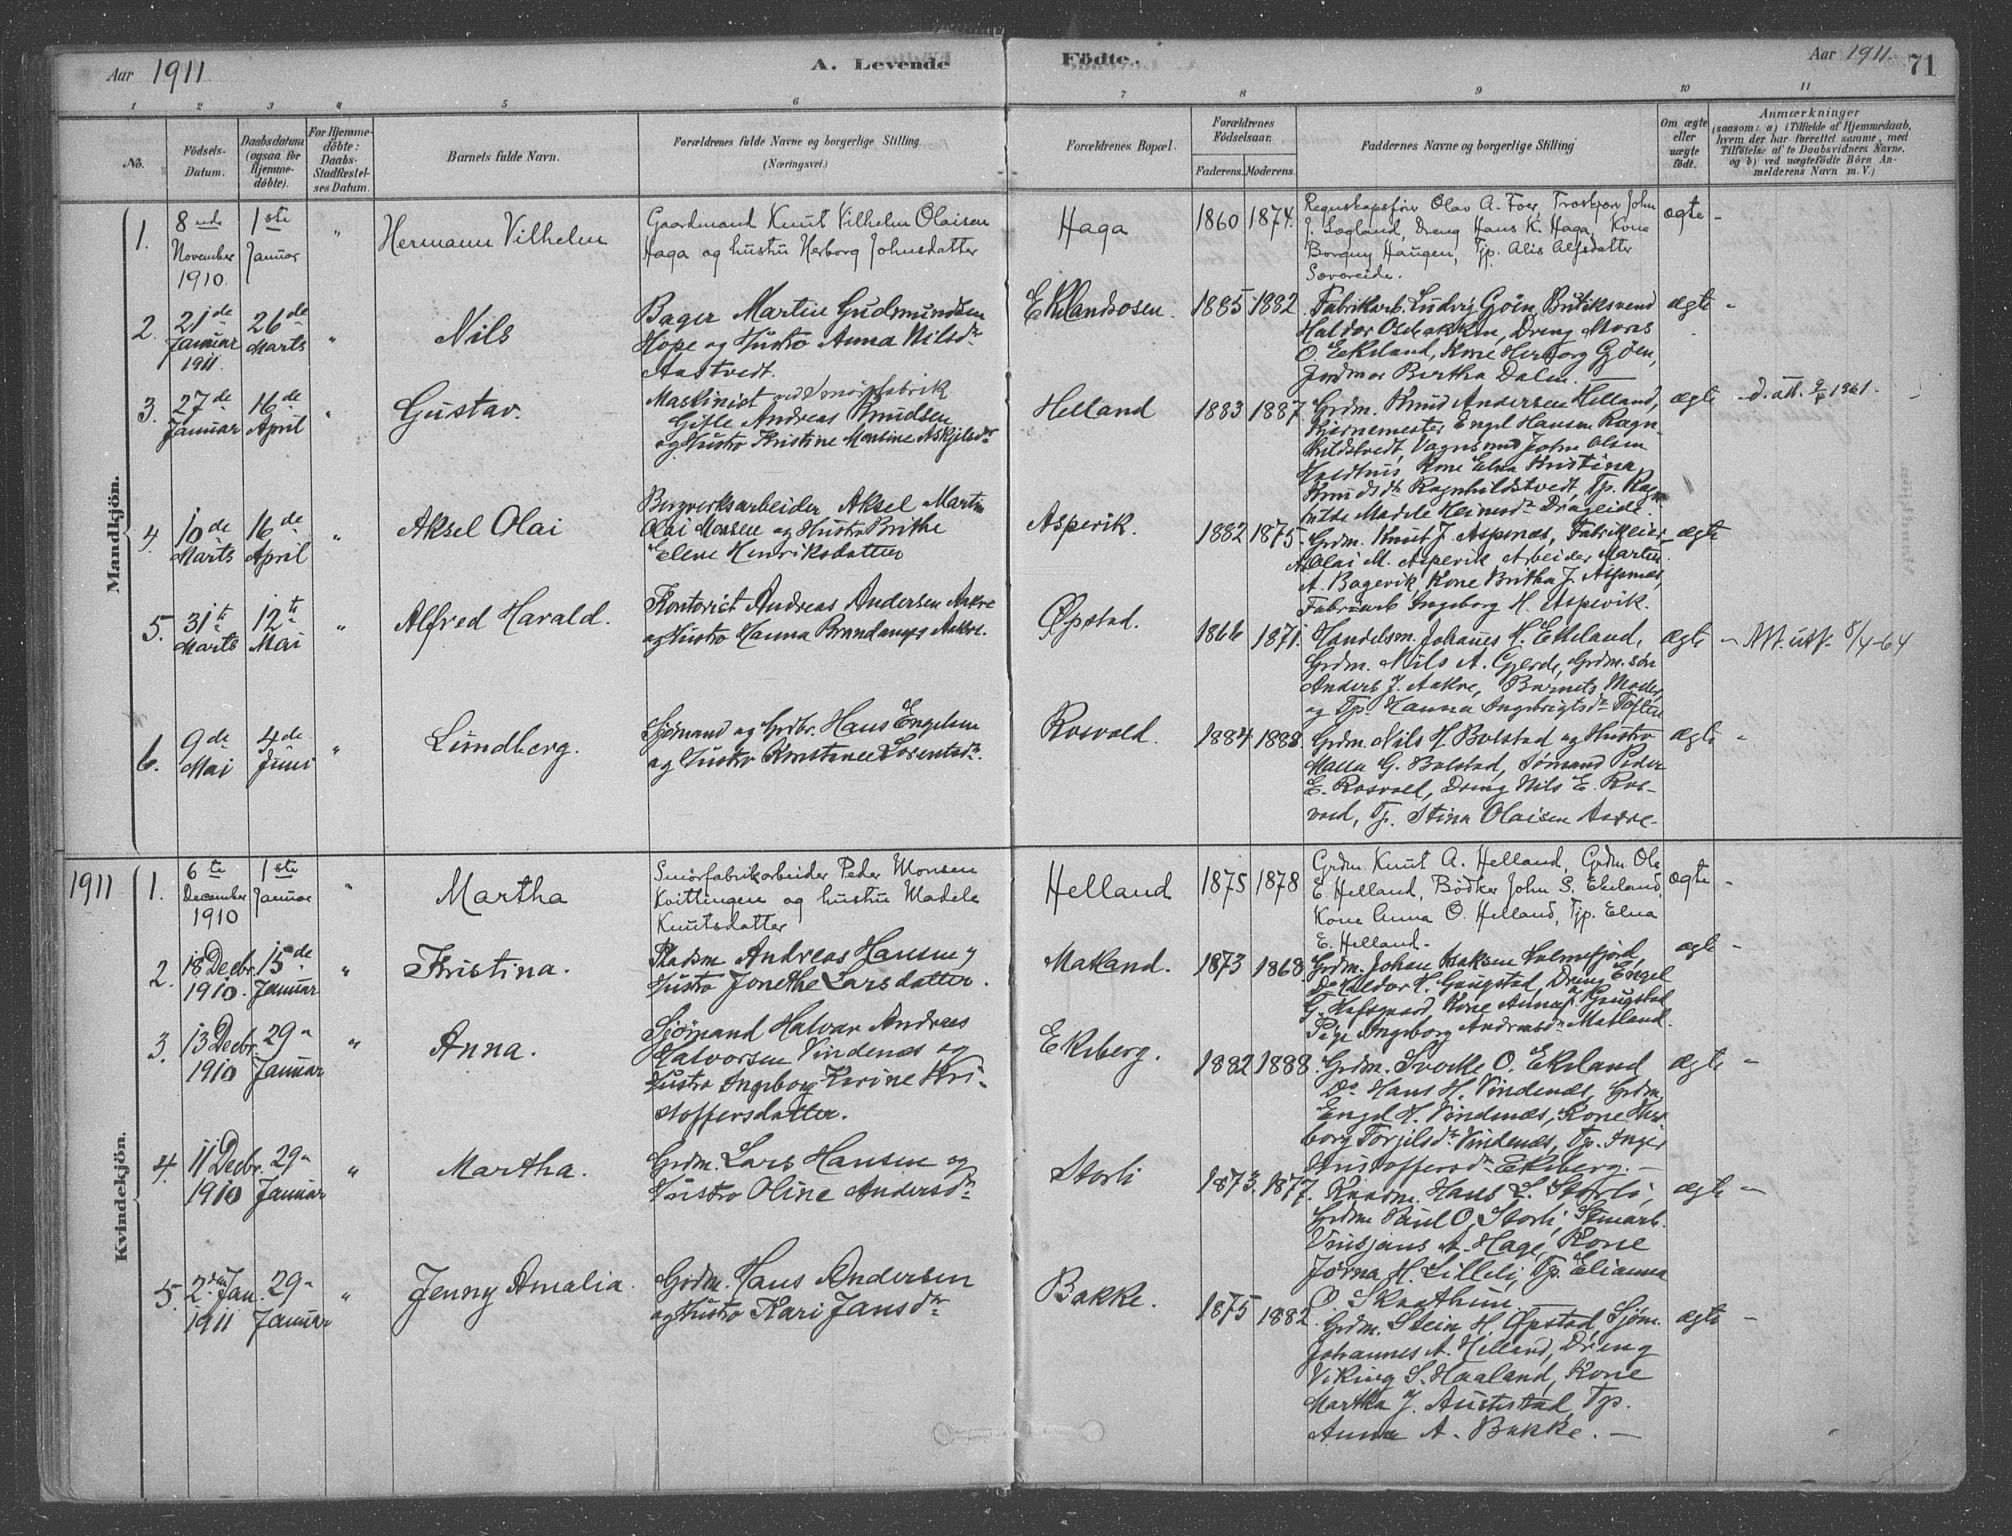 Aar 1911
A. Levende
Födte.
Aar 1911. 71
1 2 3 " 5 6 7 8 9 10 11
No.
Födsels-
Datum.
Daabsdatum
(ogsaa for
Hjemme-
döbte).
For Hjemme-
döbte:
Daabs-
Stadfæstel-
ses Datum.
Barnets fulde Navn.
Forældrenes fulde Navne og borgerlige Stilling
(Næringsvei.)
Forældrenes Bopæl.
Forældrenes
Födselsaar.
Faderens. Moderens.
Faddernes Navne og borgerlige Stilling
Om ægte
eller
uægte
födt.
Anmærkninger
(saasom: a) i Tilfælde af Hjemmedaab,
hvem der har forrettet samme, med
Tilföielse af to Daabsvidners Navne,
og b) ved uægtefödte Börn An-
melderens Navn m. V.)
Mandkjön.
1.
8
November
1910.
1ste
Januar
"
Hermann Vilhelm
Gaardmand Knut Vilhelm Olaisen
Haga og hustru Herborg Johnsdatter
Haga
1860 1874.
Regnskapsfører Olav A. Foer, John
J. Lægland, Dreng Hans K. Haga, Kone
Borgny Haugen, Tjp. Alis Alfsdatter
Sævareide.
ægte -
2.
21de
Januar
1911.
26de
Marts
"
Nils
Bager Martin Gudmundsen
Hope og Hustru Anna Nilsdr
Aastvedt.
Eklandsosen.
1885 1882.
Fabrikarb. Ludvig Gjøen, Butiksvend
Haldor Osbakken, Dreng Mons
O. Eekeland, Kone Herborg Gjøen,
Jordmor Bertha Dalen.
ægte -
3.
27de
Januar
16de
April
"
Gustav.
Maskinist ved Smørfabrik
Gitle Andreas Knudsen
og Hustru Kristine Montine Askjelsdr
Helland
1883 1887.
Grdm. Knud Andersen Helland,
Kjernemester Engel Hansen Ragn-
hildstvedt, Vognmand John Olsen
Kone Elna Kristina
Knudsdtr Ragnhildstvedt, Tp. Ragn
hilde Madele Heinesdr Drageide.
ægte
d. att. 1961.
4.
10de
Marts
16de
April
"
Aksel Olai
Bergverksarbeider Aksel Martin
Olai Monsen og Hustru Brithe
Elene Henriksdatter
Aspevik.
1882 1875.
Grdm. Knut J. Aspenæs, Fabrikeier
Olai M. Aspevik Arbeider Martin
A. Bagevik, Kone Britha J. Aspenæs,
Fabrikarb. Ingeborg H. Aspevik.
ægte
5.
31te
Marts
12te
Mai
"
Alfred Harald.
Kontorist Andreas Andersen Aakre
og Hustru Hanna Aakre.
Øpstad.
1866 1871.
Handelsm. Johanes H. Ekeland,
Grdm. Nils A. Gjerde, Grdm.søn
Anders J. Aakre, Barnets Moder,
og Tp. Hanna Ingebrigtsdr Tofte
ægte
- NM. utst. 8/4-64
6.
9de
Mai
4de
Juni
"
Lundberg.
Sjømand og Grdbr. Hans Engelsen
og Hustru Konstance Lorentsdr.
Rosvold.
1884 1888.
Grdm. Nils H. Bolstad og Hustru
Malla G. Bolstad, Sømand Peder
E. Rosvold, Dreng Nils E. Ros-
vold, Tp. Stina Olaisen Aakre.
ægte -
1911
Kvindekjön.
1.
6te
December
1910
1ste
Januar
"
Martha
Smørfabrikarbeider Peder Monsen
Kvittingen og hustru Madele
Knutsdatter
Helland
1875 1878
Grdm. Knut A. Helland, Grdm. Ole
E. Helland, Bødker John S. Ekeland,
Kone Anna O. Helland, Tjp. Elna
E. Helland.
ægte -
2.
18 Decbr.
1910.
15de
Januar
"
Kristina.
Pladsm Andreas Hansen og
Hustru Jonethe Larsdatter.
Matland.
1873 1868.
Grdm. Johan Isaksen Holmefjord,
Do Haldor H. Gaugstad, Dreng Engel
G. Hafsgaard, Kone Anna Gaugstad
Pige Ingeborg Andreasdr Matland.
ægte -
3.
13 Decbr.
1910
29"
Januar
"
Anna.
Sjömand Halvar Andreas
Halvorsen Vindenæs og
Hustru Ingeborg Karine Kri-
stoffersdatter.
Ekeberg.
1882 1888.
Grdm. O. Ekeland
Do Hans H. Vindenæs, Grdm.
Engel H. Vindenæs, Kone Her-
borg Torjilsdr Vindenæs, Tp. Inger
Kristoffersdr Ekeberg.
ægte -
4.
11 Decbr.
1910
29"
Januar
"
Martha.
Grdm. Lars Hansen og
Hustru Oline Andersdr
Storli
1873. 1877.
Kaarm. Hans L. Storli,
Grdm Paul O. Storli,
Vinsjans A. Hage, Kone
Jørna H. Lilleli, Tp. Elianna
O. Skaathun
ægte -
5.
2den Jan.
1911
29"
Januar
"
Jenny Amalia.
Grdm. Hans Andersen
og Hustru Kari Jansdr
Bakke.
1875 1882.
Grdm. Stein H. Øpstad, Sjøm.
Johannes A. Helland, Dreng
Viking S. Haaland, Kone
Martha J. Austestad, Tp.
Anna A. Bakke. -
ægte -